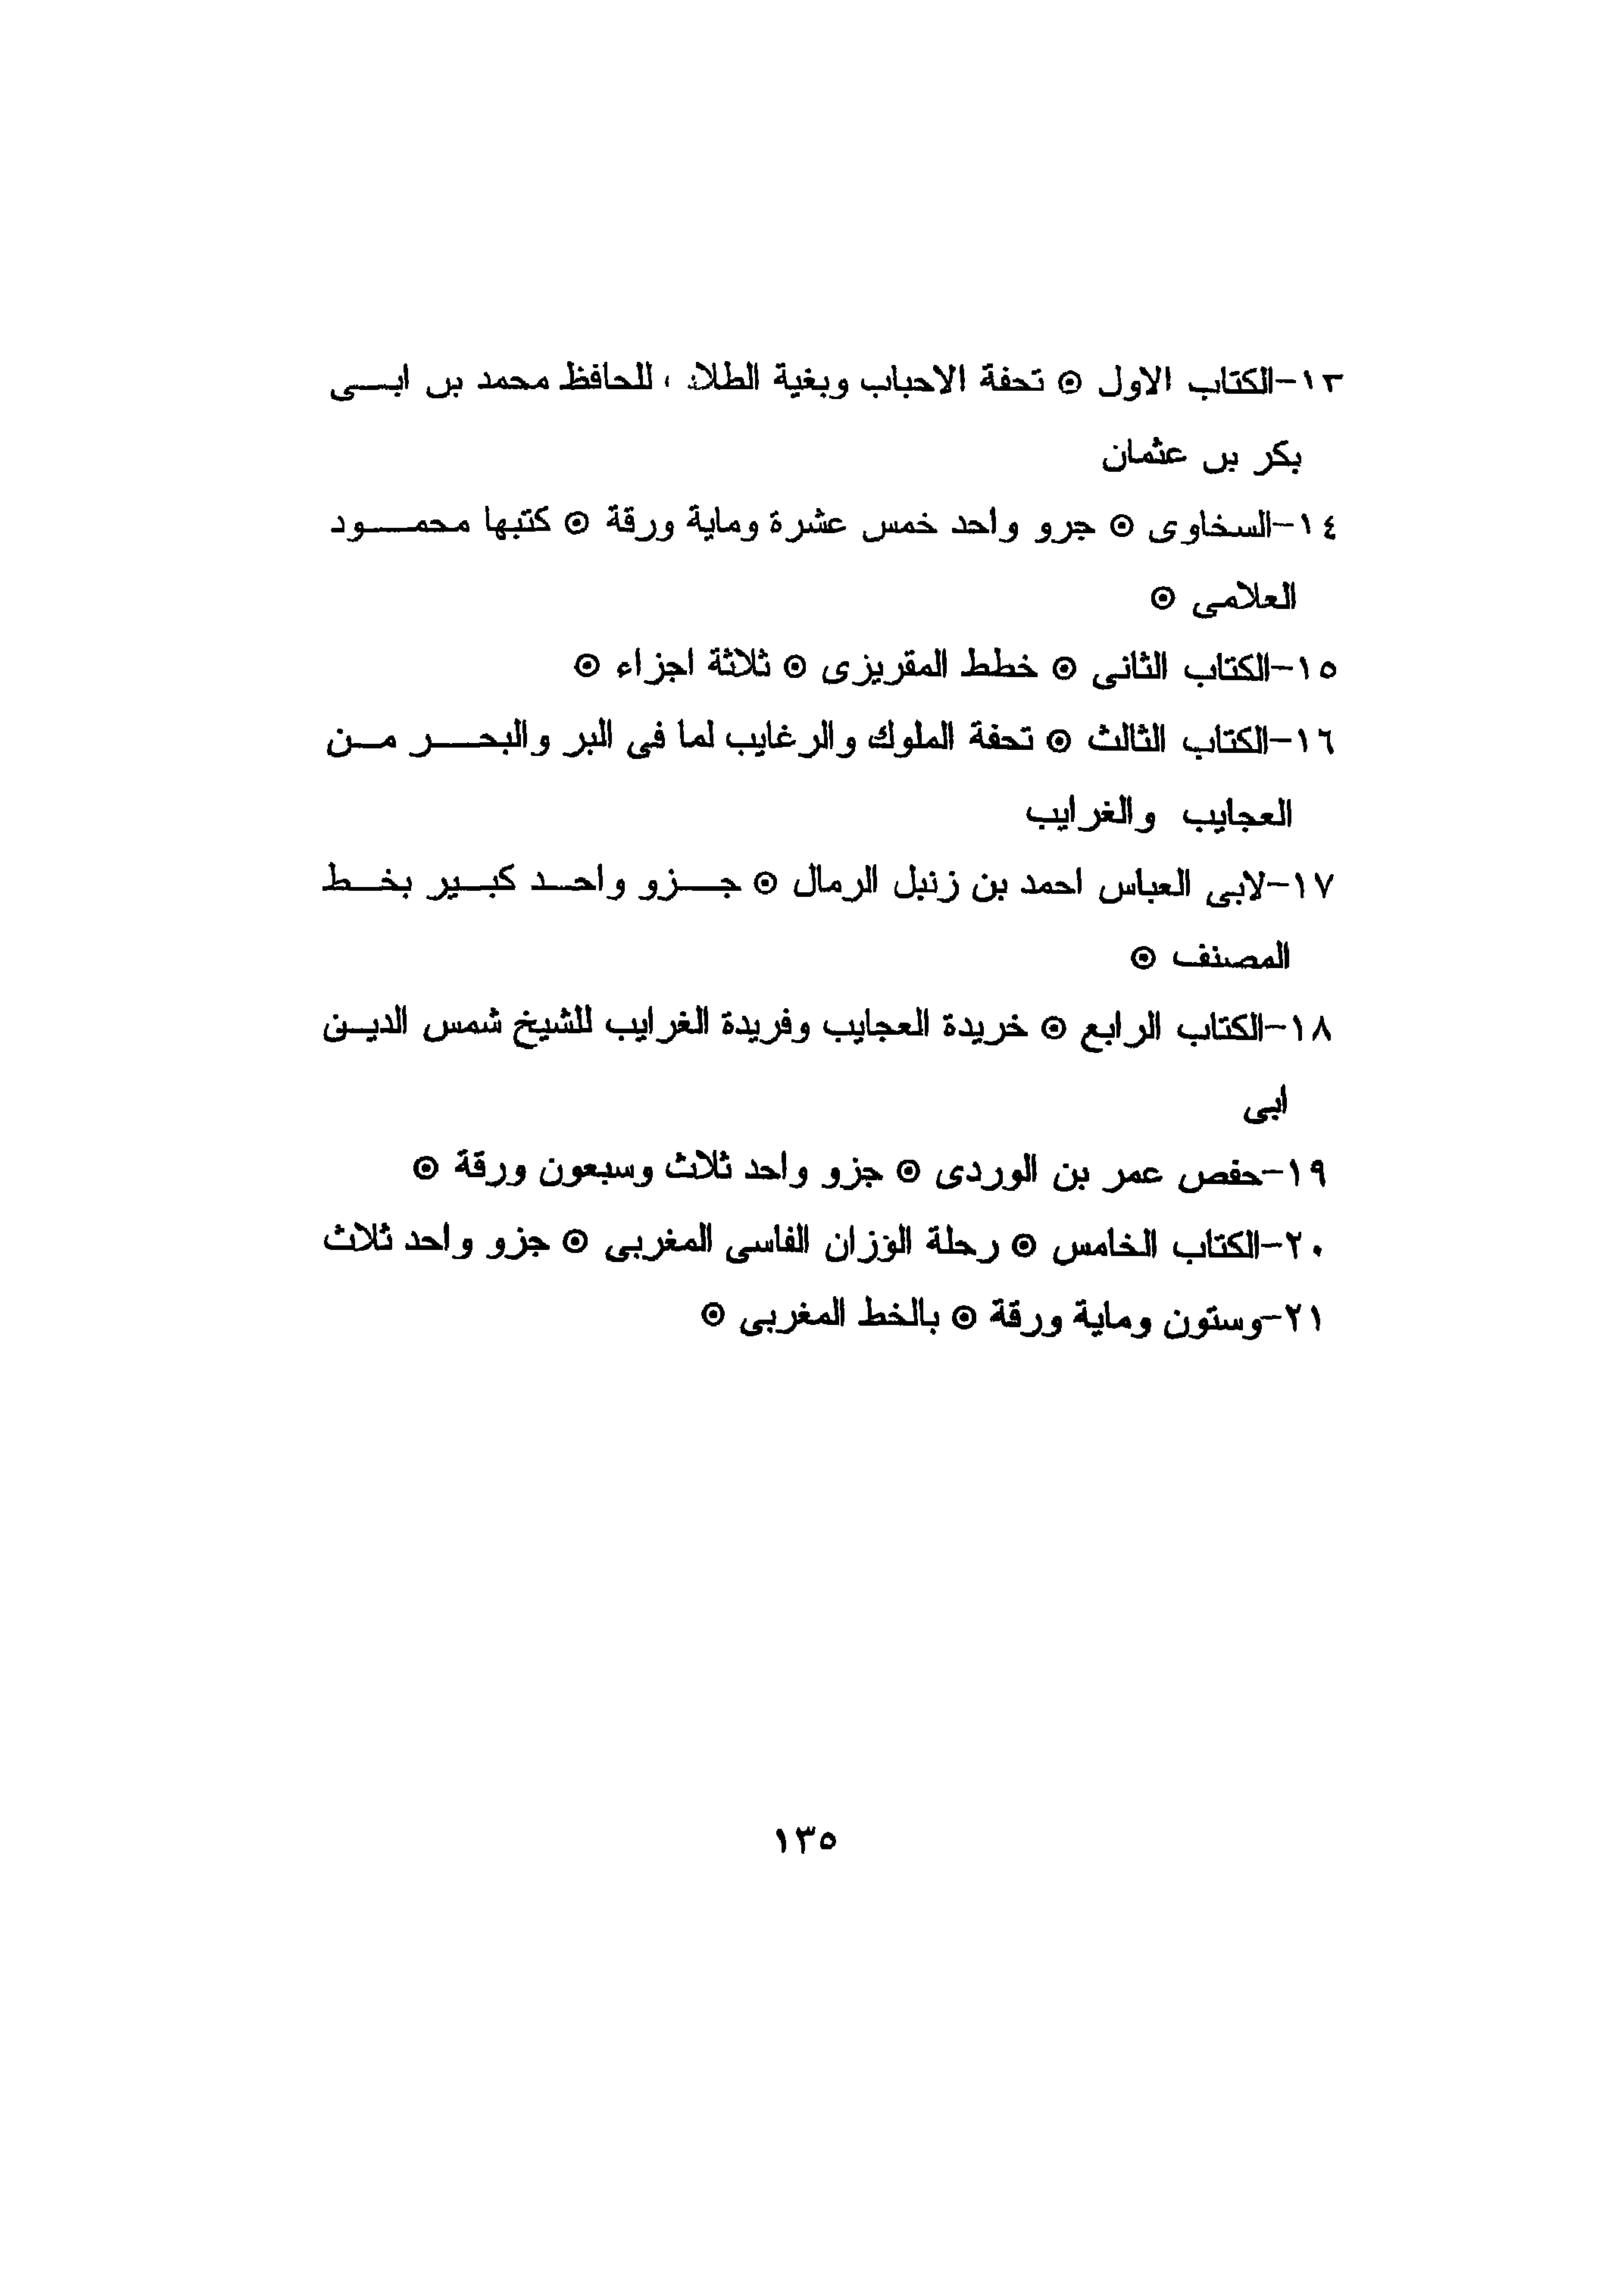 ١٣-الكتاب الاول ⊙ تحفة الاحباب وبغية للحافظ محمد بن ابـــى
بكر بن عثمان
١٤-السخاوى ⊙ جرو واحد خمس عشرة وماية ورقة ⊙ كتبها محمـــود
العلامى ⊙
١٥-الكتاب الثانى ⊙ خطط المقريزى ⊙ ثلاثة اجزاء ⊙
١٦-الكتاب الثالث ⊙ تحفة الملوك والرغايب لما فى البر والبحـــر مـن
العجايب والغرايب
١٧-لابى العباس احمد بن زنبل الرمال ⊙ جـــزو واحـد كبـير بخـط
المصنف ⊙
١٨-الكتاب الرابع ⊙ خريدة العجايب وفريدة الغرايب للشيخ شمس الديـن
ابى
١٩-حفص عمر بن الوردى ⊙ جزو واحد ثلاث وسبعون ورقة ⊙
٢٠-الكتاب الخامس ⊙ رحلة الوزان الفاسى المغربى ⊙ جزو واحد ثلاث
٢١-وستون وماية ورقة ⊙ بالخط المغربى ⊙
١٣٥